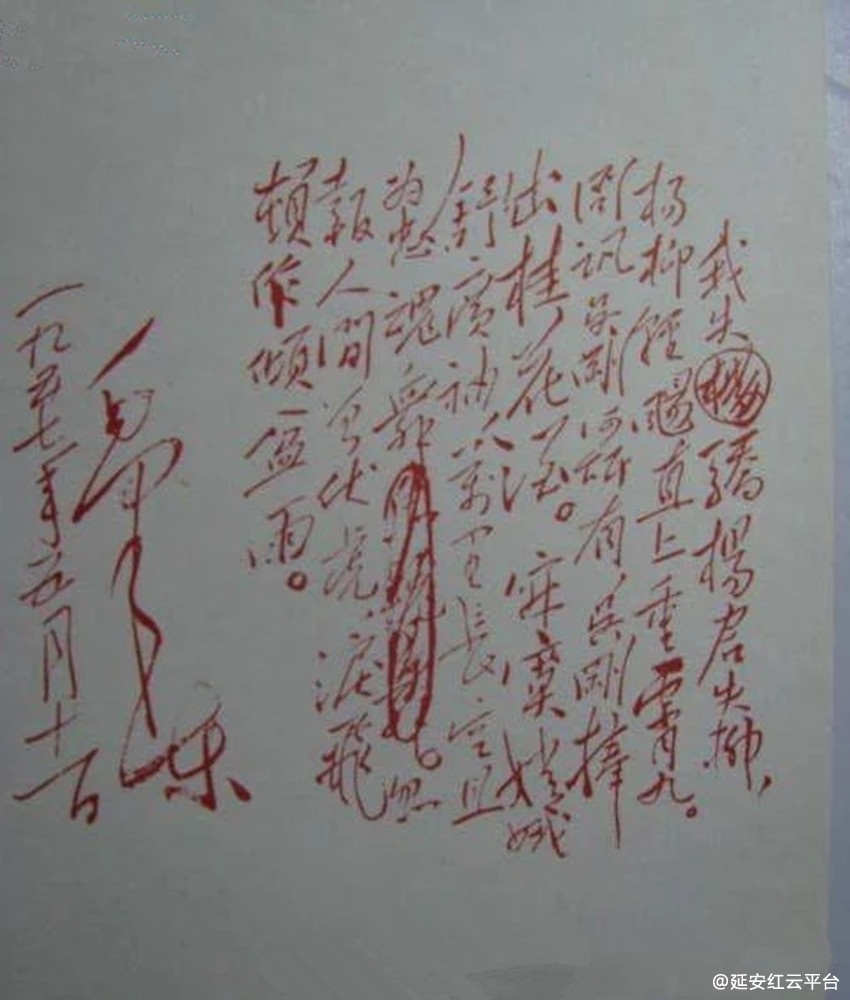 我失驕楊君失柳,
杨柳輕颺直上重霄九。
问訊吴剛何所有,吴剛捧
出桂花酒。寂寞嫦娥
舒廣袖,萬里長空且
为忠魂舞。忽
報人間曾伏虎,淚飛
頓作傾盆雨。
毛泽东
一九五七年五月十一日
@延安红云平台